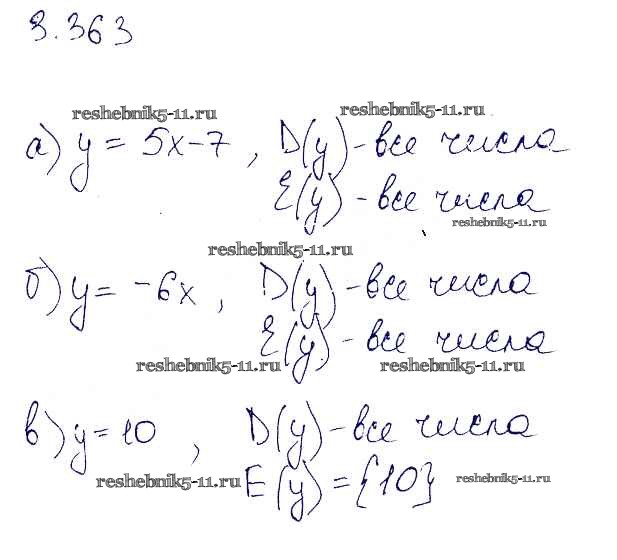 3.363
reshebnik5-11.ru reshebnik5-11.ru
а) y = 5x-7, D(y) - все числа
E(y) - все числа
reshebnik5-11.ru
reshebnik5-11.ru
б) y = -6x, D(y) - все числа
E(y) - все числа
reshebnik5-11.ru reshebnik5-11.ru
в) y = 10, D(y) - все числа
E(y) = {10}
reshebnik5-11.ru reshebnik5-11.ru